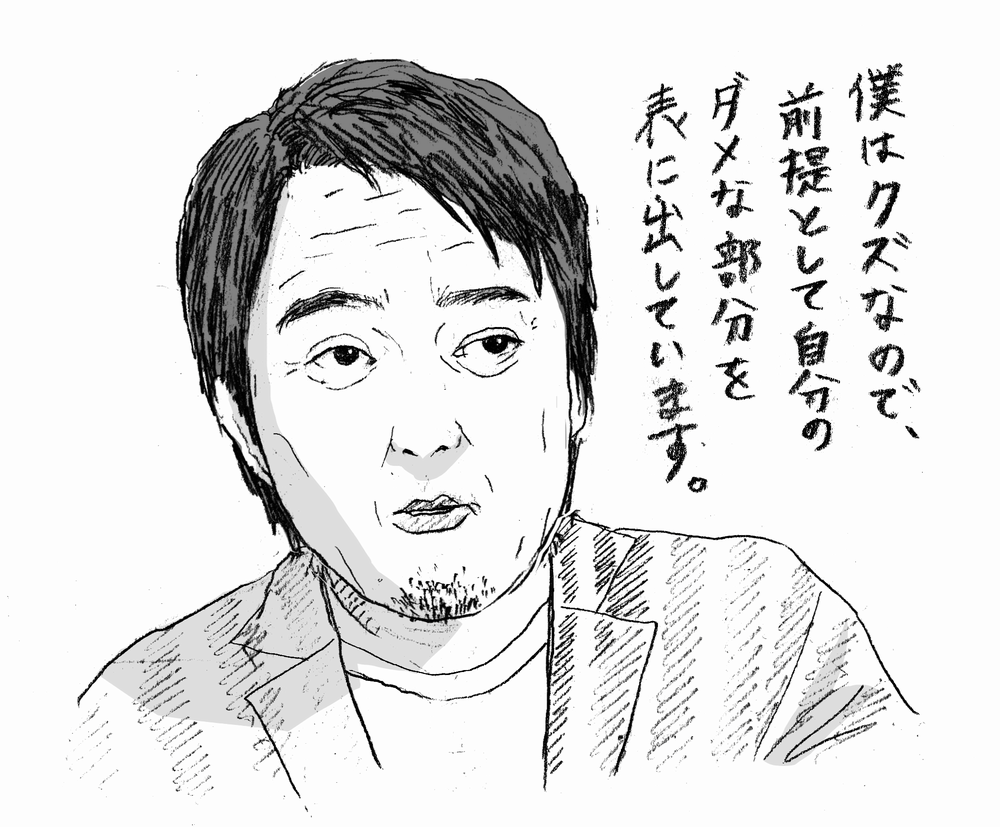 僕はクズなので、
前提として自分の
ダメな部分を
表に出しています。